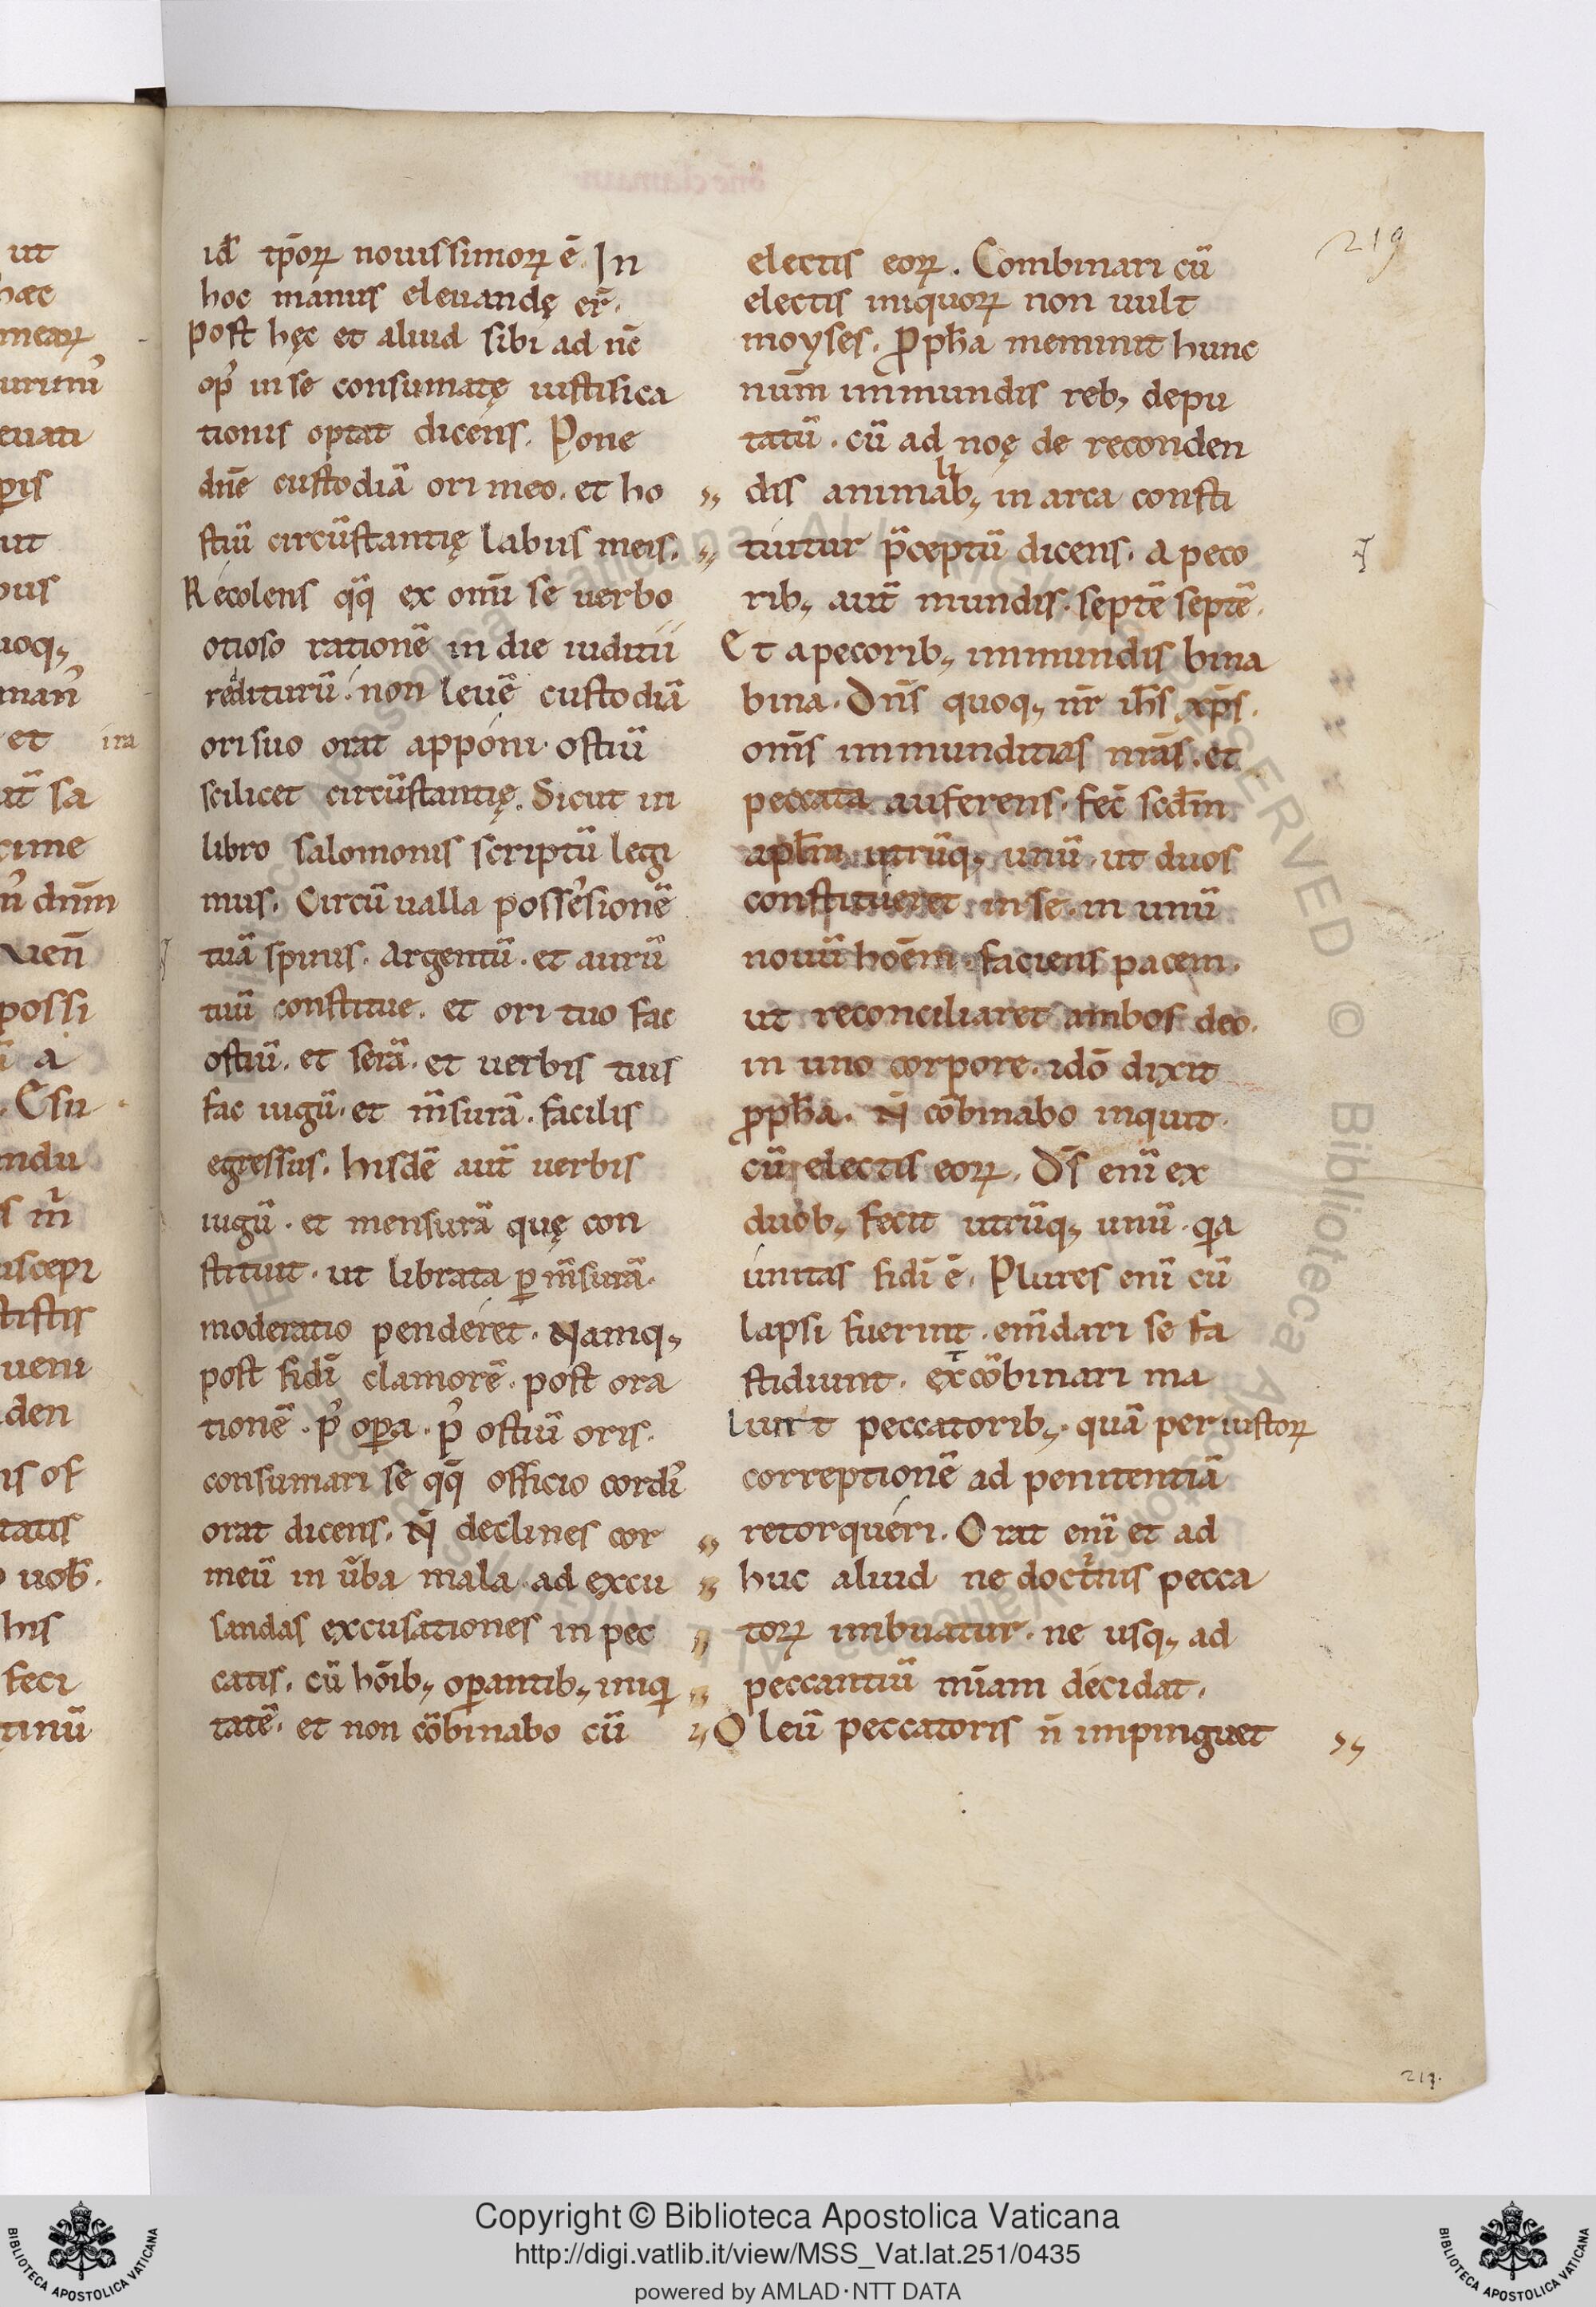 ut
hæc
mearꝝ
euati
ut
et ira
ut̃ sa
dñm
possi
a
Esu
ndu
s m̃
uscepi
stiftis
ueni
den
is of
tatis
his
feci
tinũ
id̃ tp̄orꝝ nouissimorꝝ ē. In
hoc manus eleuandę er̄.
post hęc et aliud sibi ad nc̄
op᷒ in se consumatę iustifica
tionis optat dicens. Pone
dn̄e custodiã ori meo. et ho
stiũ circũstantię labiis meis.
Recolens qq̃ ex om̄ī se uerbo
otioso rationẽ in die iuditii
redditurũ. non leuẽ custodiã
ori suo orat apponi. ostiũ
scilicet circũstantię. Sicut in
libro salomonis scriptũ legi
mus. Circũ ualla possesionẽ
tuã spinis. Argentũ. et aurũ
tuũ constitue. et ori tuo fac
ostiũ. et serã. et uerbis tuis
fac iugũ. et m̃surã. facilis
egressus. hisdẽ aut̃ uerbis
iugũ. et mensurã quę con
stituit. ut librata ꝑ m̃surã.
moderatio penderet. Namq;
post fidī clamorẽ. post ora
tionẽ. p᷒ oꝑa. p᷒ ostiũ oris.
consumari se qq̃ officio cordi᷒
orat dicens. N̄ declines cor
meũ in ũba mala. ad excu
sandas excusationes in pec
catis. cũ hoīb; oꝑantib; iniqi
tatẽ. et non cõbinabo cũ
219
electis eorꝝ. Combinari cũ
electis iniquorꝝ non uult
moyses. Ꝓph̄a meminit hunc
num̄ inmundis reb; depu
tatũ. cũ ad noę de reconden
dis animalib; in arca consti
tuitur p̃ceptũ dicens. A peco
rib; aut̃ mundis. septẽ septẽ.
Et a pecorib; inmundis bina
bina. Dñs quoq; nr̄ ih̄s xp̄s.
om̄s inmunditias nrās. et
peccata auferens. fec̄ scd̄m
apl̄m utrũq; unũ. ut duos
constitueret in se. in unũ
nouũ hoēm. faciens pacem.
ut reconciliaret ambos deo.
in uno corpore. idō dixit
ꝓph̄a. N̄ cõbinabo inquit.
cũ electis eorꝝ. D̄s enĩ ex
duob; fecit utrũq; unũ. qa
unitas fidī ē. Plures enĩ cũ
lapsi fuerint. em̃dari se fa
stidiunt. et cõbinari ma
lunt peccatorib;. quã per iustorꝝ
correptionẽ ad penitentiã
retorqueri. Orat enĩ et ad
huc aliud ne doct̃nis pecca
torꝝ imbuatur. ne usq; ad
peccantiũ mīam decidat.
Oleũ peccatoris n̄ impinguet
217.
Copyright © Biblioteca Apostolica Vaticana
http://digi.vatlib.it/view/MSS_Vat.lat.251/0435
powered by AMLAD·NTT DATA
BIBLIOTECA APOSTOLICA VATICANA
BIBLIOTECA APOSTOLICA VATICANA